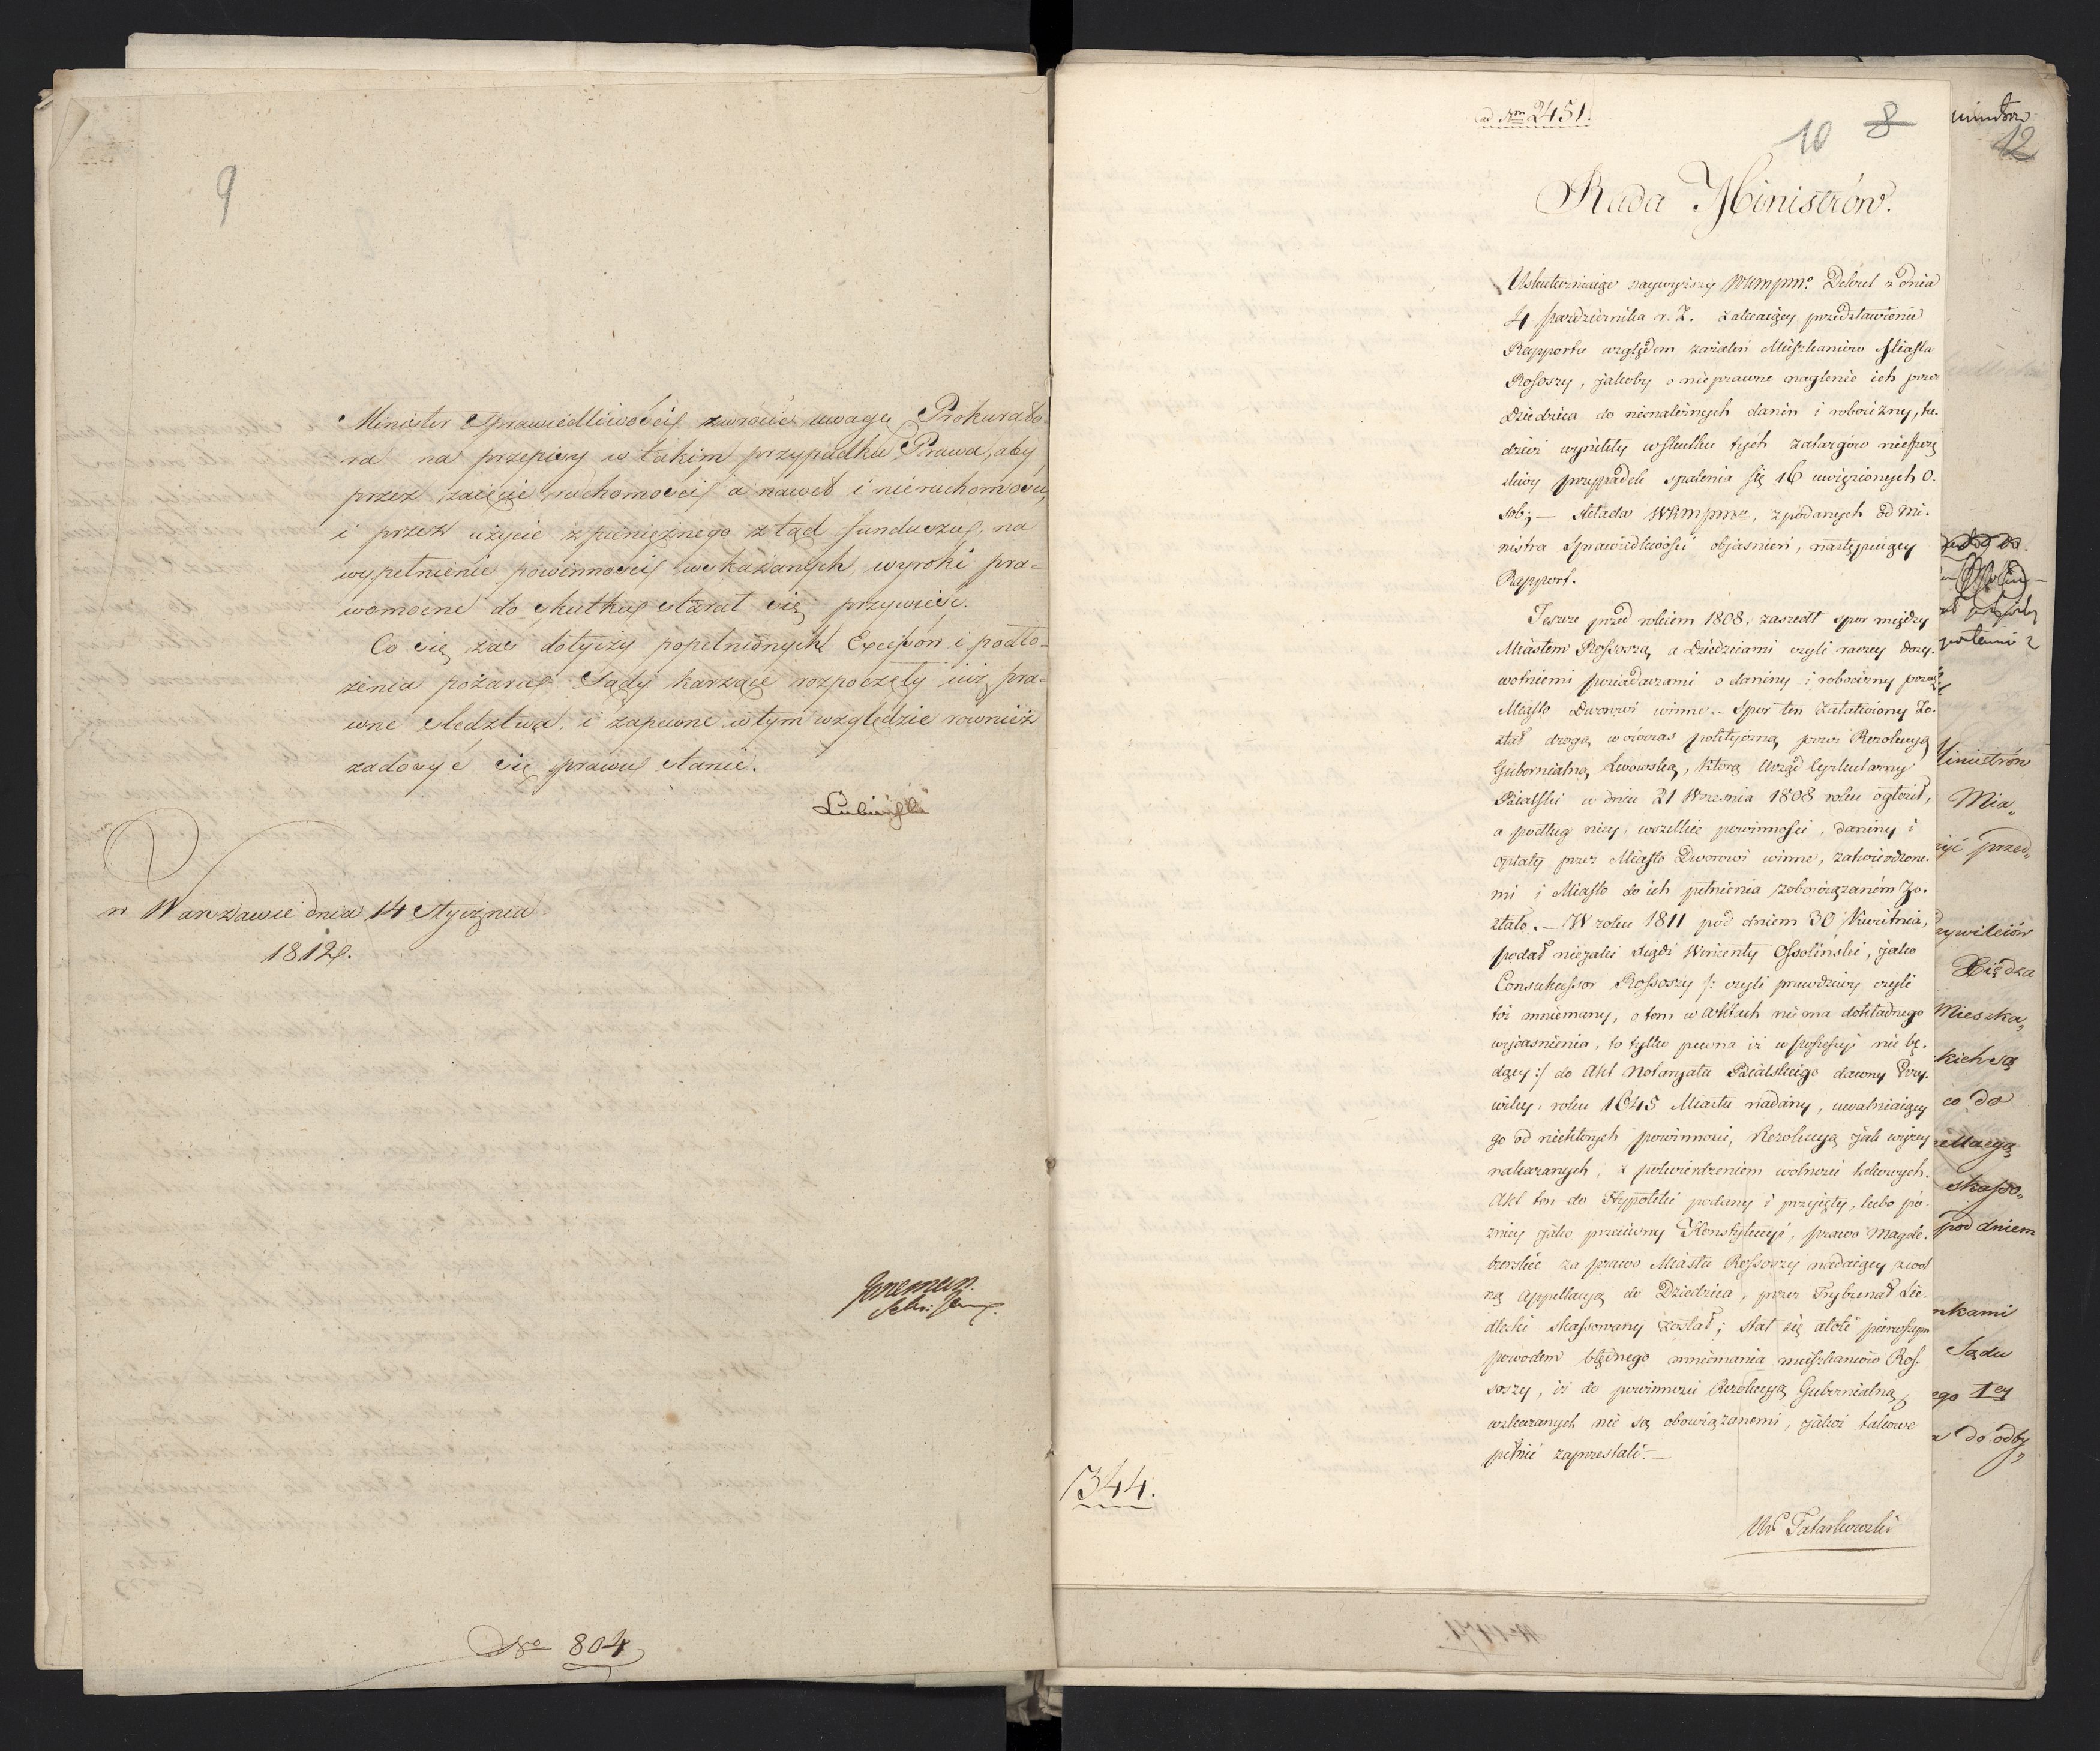 9
Minister Sprawiedliwości zwrócić uwagę Prokurato-
ra na przepisy w takim przypadku Prawa, aby
przez zaięcie ruchomości a nawet i nieruchomości,
i przez użycie z pieniężnego ztąd funduszu, na
wypełnienie powinności wskazanych, wyroki pra-
womocne do skutku starał się przywieść.
Co się zaś dotyczy popełnionych Excessów i podło-
żenia pożaru Sądy karzące rozpoczęły iuż pra-
wne sledztwa, i zapewne w tym względzie również
zadosyć się prawu stanie.
Lubieński
w Warszawie dnia 14 Stycznia
1812.
No 804
ad Nrm 2451.
10 8
Rada Ministrów.
Uskuteczniaiąc naywyższy WKMPMC. Dekret z dnia
4 Pazdziernika r. z. zalecaiący przedstawienie
Rapportu względem zażaleń Mieszkańców Miasta
Rossoszy, jakoby o nieprawne naglenie ich przez
Dziedzica do nienależnych danin i robocizny, tu-
dzież wynikły w skutku tych zatargów nieszczę
śliwy przypadek spalenia się 16 uwięzionych O-
sob; — składa WKMPMC, z podanych od Mi-
nistra Sprawiedliwości objasnień, następuiący
Rapport.
Jeszcze przed rokiem 1808, zaszedł spor między
Miastem Rossoszą a Dziedzicami czyli raczey dozy-
wotniemi posiadaczami o daniny i robocizny przez
Miasto Dworowi winne. Spór ten załatwiony zo-
stał drogą wówczas polityczną przez Rezolucyą
Gubernialną Lwowską, którą Urząd Cyrkularny
Bialski w dniu 21 Wrzesnia 1808 roku ogłosił,
a podług niey, wszelkie powinności, daniny i
opłaty przez Miasto Dworowi winne, zatwierdzone-
mi i Miasto do ich pełnienia zobowiązaném zo-
stało. — W roku 1811 pod dniem 30 Kwietnia,
podał nieiaki Xiądz Wincenty Ossoliński, jako
Consukcessor Rossoszy /: czyli prawdziwy czyli
też mniemany, o tem w aktach nie ma dokładnego
wyjasnienia, to tylko pewna iż w possessyi nie bę-
dący :/ do Akt Notaryatu Bialskiego dawny Przy-
wiley, roku 1645 Miastu nadany, uwalniaiący
go od niektórych powinności, Rezolucyą jak wyżey
nakazanych, z potwierdzeniem wolności takowych.
Akt ten do Hypoteki podany i przyięty, lubo pó-
zniey jako przeciwny Konstytucyi, prawo Magde-
burskie za prawo Miastu Rossoszy nadaiący, z wol
ną appellacyą do Dziedzica, przez Trybunał Sie-
dlecki skassowany został; stał się atoli pierwszym
powodem błędnego mniemania mieszkańców Ros-
soszy, iż do powinności Rezolucyą Gubernialną
wskazanych nie są obowiązanemi, jakoż takowe
pełnić zaprzestali. —
1344.
Tatarkowski
12
Ministrów
Mia„
przed„
Xiędza
Mieszka„
kich są
co do
pod dniem
Sądu
1ey
do odby„